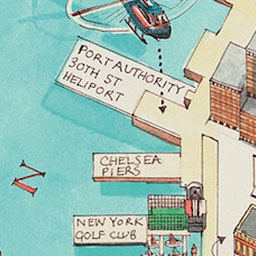 PORT AUTHORITY
30TH ST
HELIPORT
CHELSEA
PIERS
NEW YORK
GOLF CLUB
N